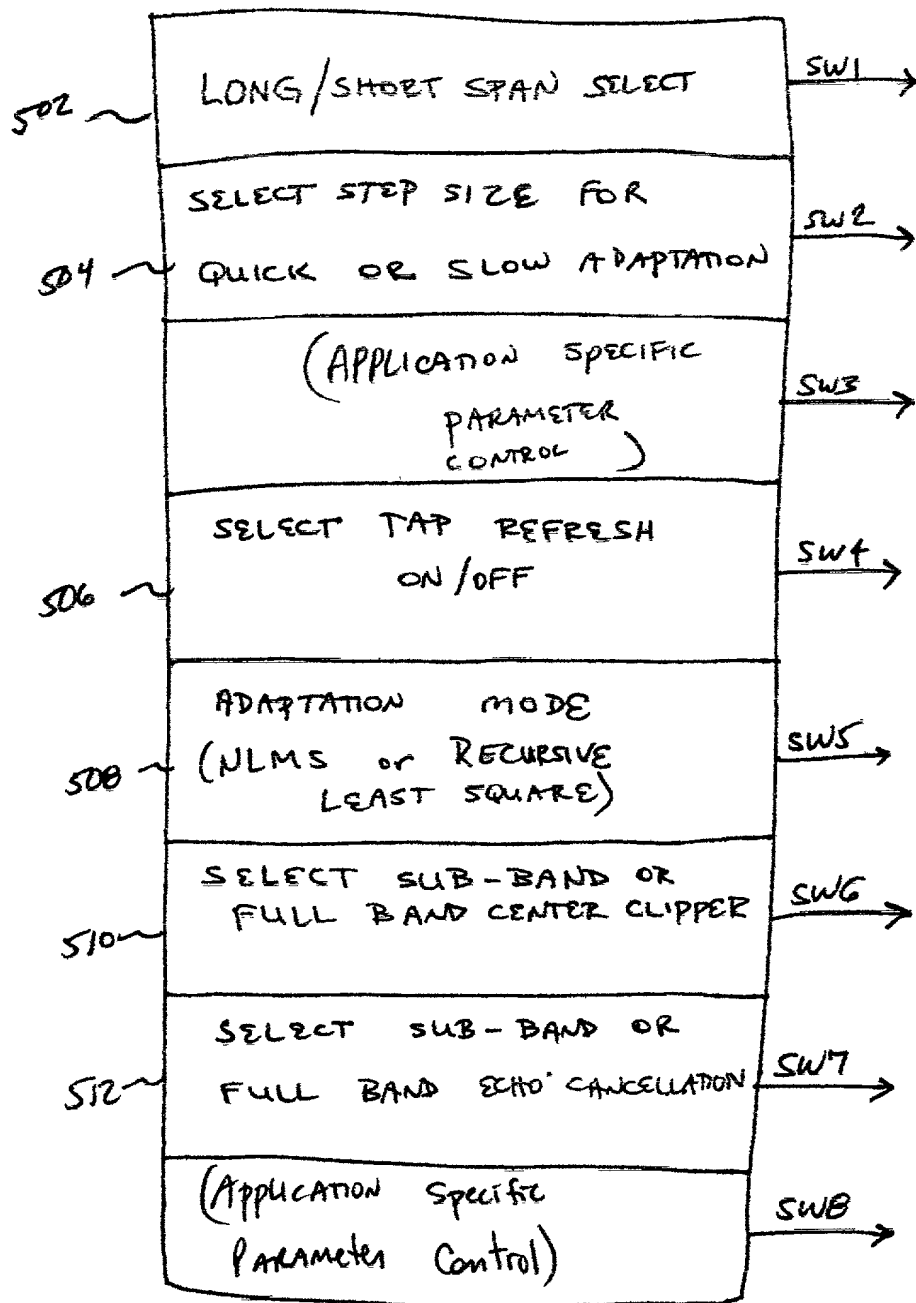 LONG/SHORT SPAN SELECT
SW1
502
SELECT STEP SIZE FOR
SW2
504
QUICK OR SLOW ADAPTATION
(APPLICATION SPECIFIC
SW3
PARAMETER
CONTROL)
SELECT TAP REFRESH
ON/OFF
SW4
506
ADAPTATION MODE
SW5
508
(NLMS or RECURSIVE
LEAST SQUARE)
SELECT SUB-BAND OR
SW6
FULL BAND CENTER CLIPPER
510
SELECT SUB-BAND OR
SW7
512
FULL BAND ECHO CANCELLATION
(APPLICATION Specific
SW8
PARAMETER Control)